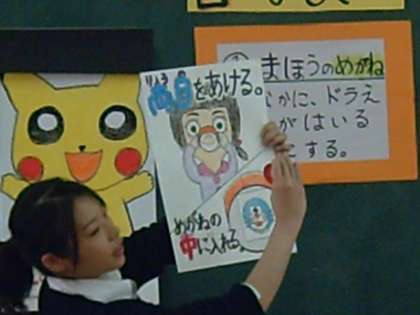 りょう め
両目をあける。
めがねの
中に入れる。
まほうのめがね
らかに、ドラえ
がはいる
にする。